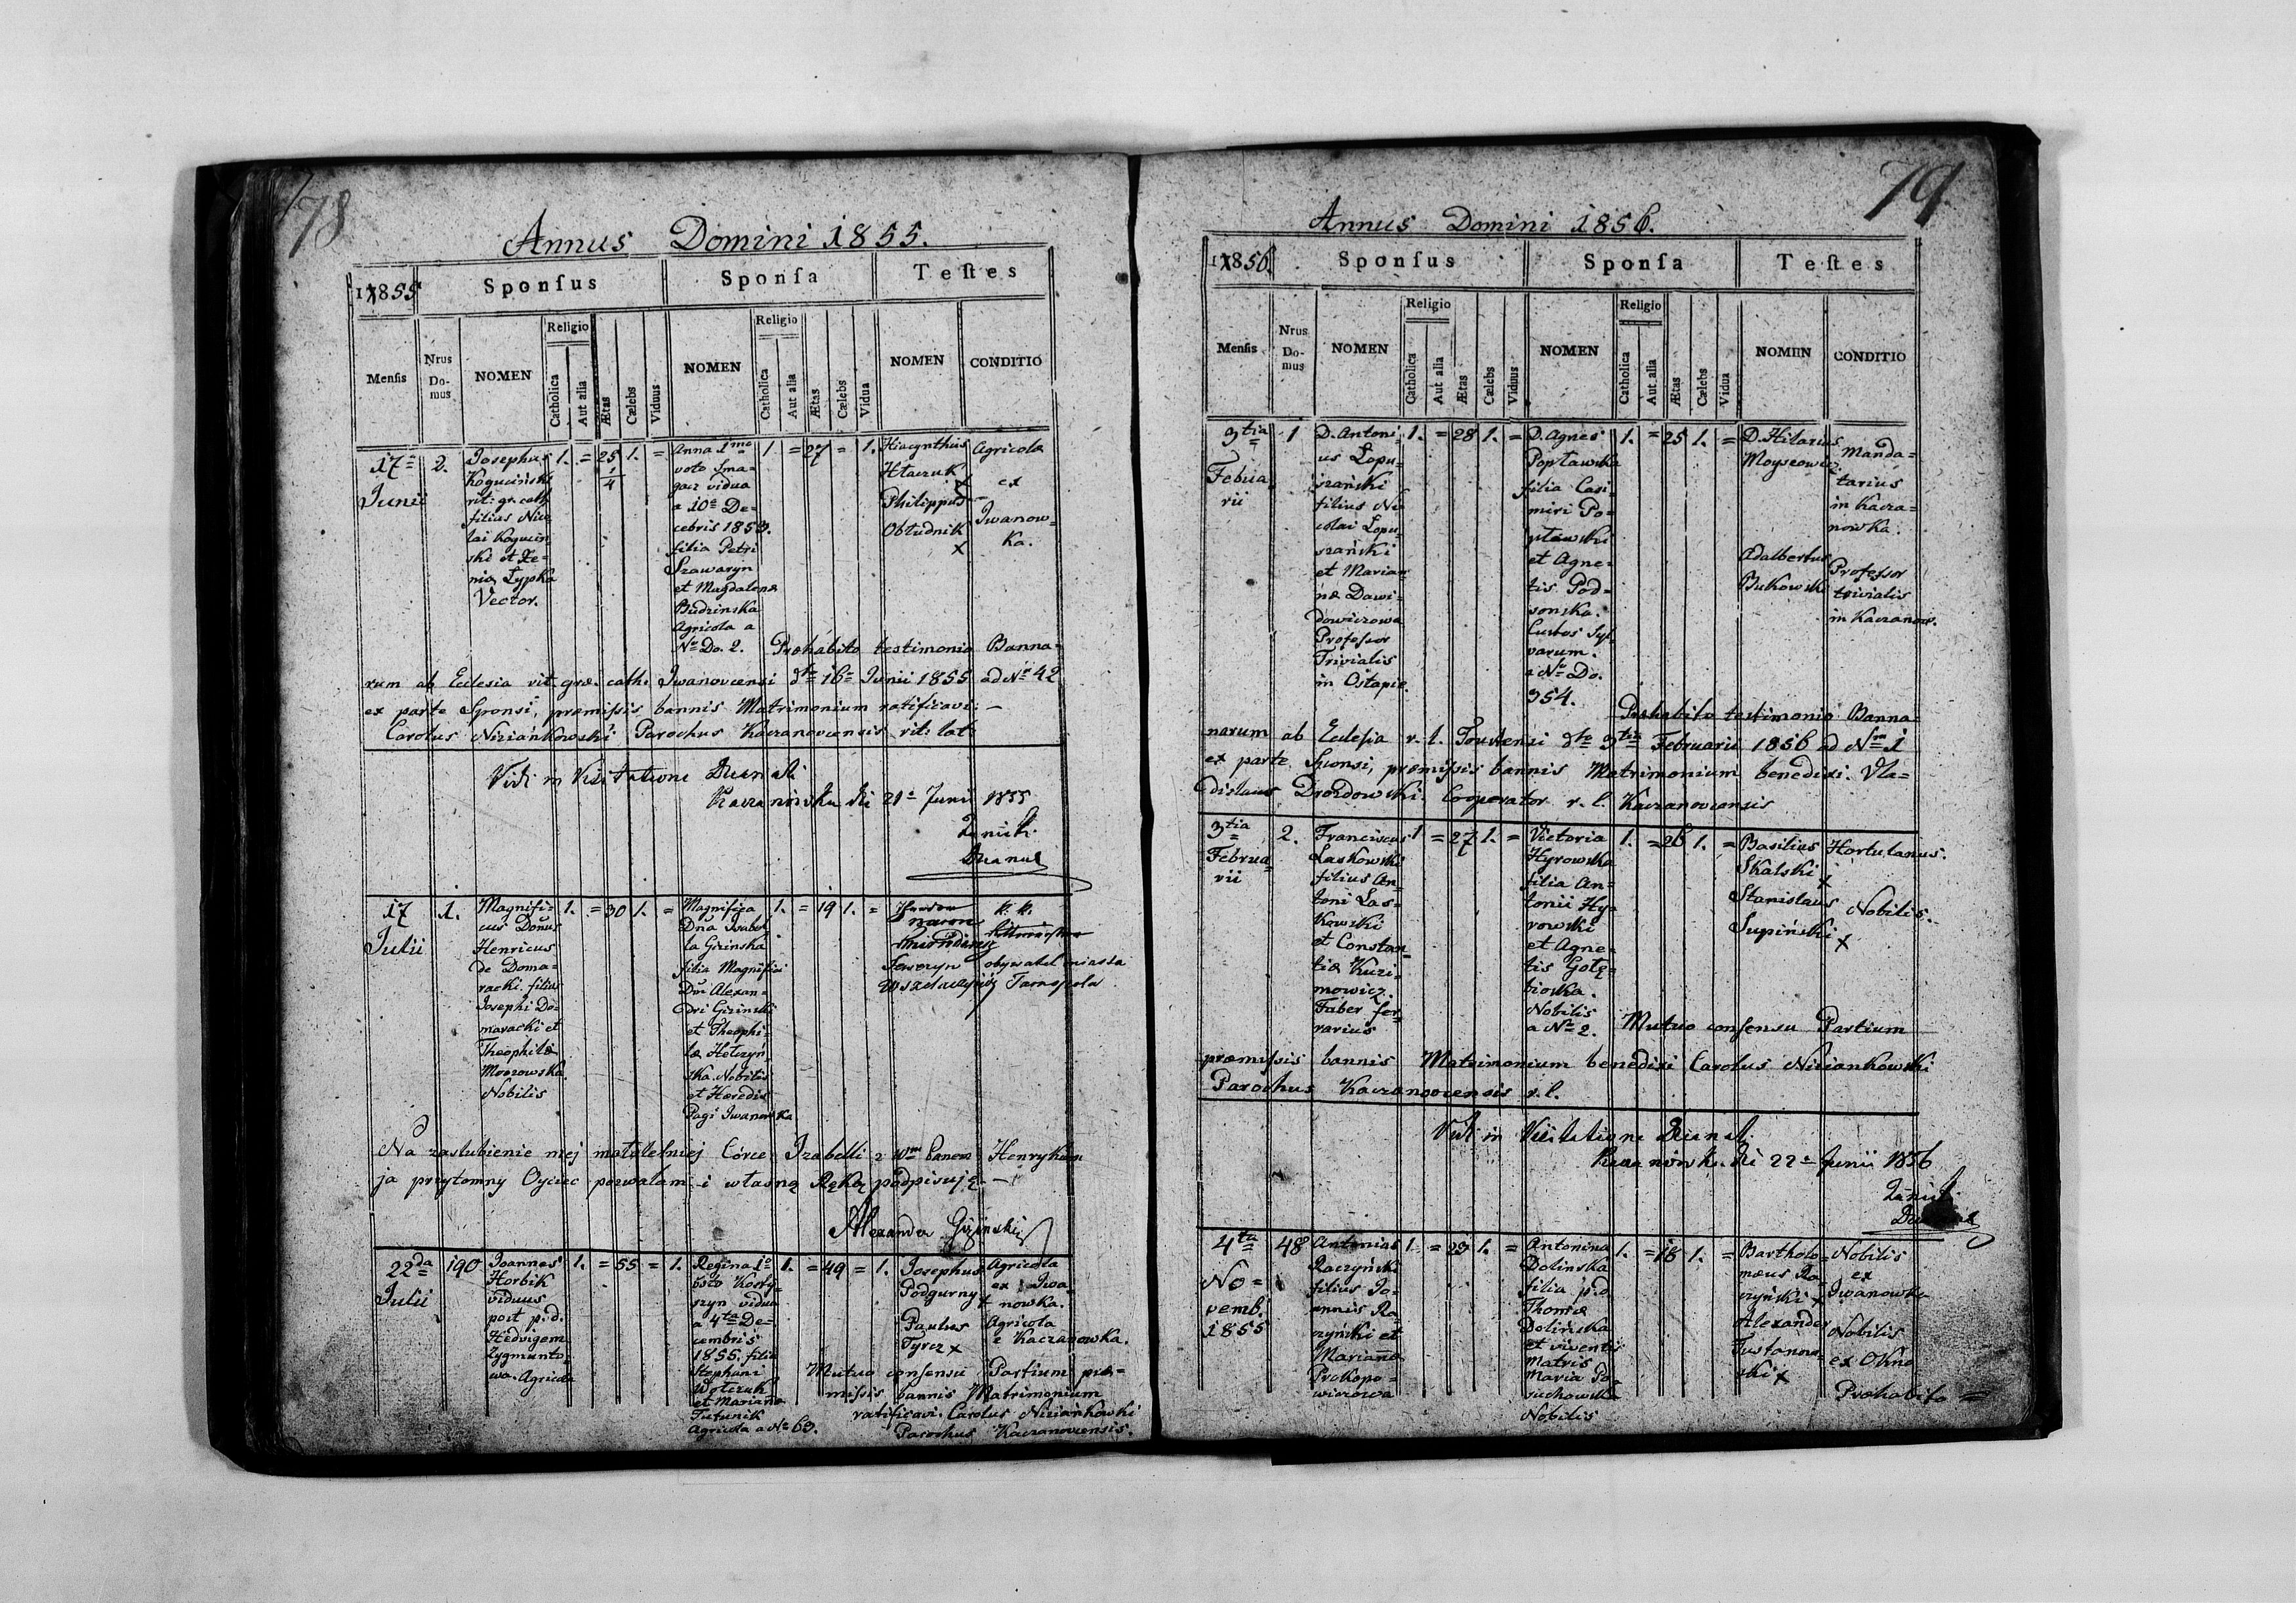 78
Annus Domini 1855.
1855
Sponſus
Sponſa
Teſtes
Menſis
Nrus Do-mus
NOMEN
Religio
Catholica
Aut alia
Ætas
Cælebs
Viduus
NOMEN
Religio
Catholica
Aut alia
Ætas
Cælebs
Vidua
NOMEN
CONDITIO
17a
Junii
2.
Josephus
Koguciński
rit: gr. cath
filius Nico
lai Kogucin
ski et Xe=
niæ Lypka
Vector.
1. = 25 1/4 1. =
Anna 1mo
voto Sma
gacz vidua
a 10a De=
cebris 1853.
filia Petri
Szawaryn
et Magdalenæ
Budzinska
Agricola a
No Do. 2.
1 = 27 = 1.
Hiacynthus
Htaczuk
x
Philippus
Obłudnik
x
Agricolæ
ex
Iwanow=
ka.
Præhabito testimonio Banna=
rum ab Ecclesia rit. græ. cath. Iwanovcensi dto 16a Junii 1855 ad No 42
ex parte Sponsi, præmissis bannis Matrimonium ratificavi. —
Carolus Niziankowski Parochus Kaczanovcensis rit: lat:
Vidi in Visitatione Decanali
Kaczanówka di 21a Junii 1855
17
Julii
1.
Magnifi=
cus Dońus
Henricus
de Doma=
racki. filius
Josephi Do=
maracki et
Theophilæ
Morzowska.
Nobilis
1. = 30 1. =
Magnifica
Dńa Isabel
la Gizinska
filia Magnifici
Dńi Alexan=
dri Gizinski
et Theophi=
læ Hełczyń
ska. Nobilis
et Hæredis
Pagi Iwanowka
1. = 19 1. =
Seweryn
k. k.
obywatel miasta
Tarnopola
Na zaslubienie mej małoletniej Córce Izabelli z Wm Panem Henrykiem
ja przytomny Oyciec pozwalam i własną Ręką podpisuję —
Alexander Gizinski
22da
Julii
190
Joannes
Horbik
viduus
post p. d.
Hedvigem
Zygmunto=
wa. Agricola
1. = 55 = 1.
Regina 1o
voto Kosty
szyn vidua
a 4ta De=
cembris
1855. filia
Stephani
Wołczuk
et Mariannæ
Tutunik
Agricola a No 69.
1. = 49 = 1.
Josephus
Podgurny
x
Paulus
Tyrcz x
Agricola
ex Iwa
nowka.
Agricola
e Kaczanowka.
Mutuo consensu Partium præ=
missis bannis Matrimonium
ratificavi. Carolus Niziankowski
Parochus Kaczanovcensis.
79
Annus Domini 1856.
1856.
Sponſus
Sponſa
Teſtes
Menſis
Nrus Do-mus
NOMEN
Religio
Catholica
Aut alia
Ætas
Cælebs
Viduus
NOMEN
Religio
Catholica
Aut alia
Ætas
Cælebs
Vidua
NOMEN
CONDITIO
3tia
Februa
rii
1
D. Antoni=
us Łopu=
szański
filius Ni
colai Łopu=
szański
et Marian
næ Dawi=
dowiczowa
Professor
Trivialis
in Ostapie.
1. = 28 1. =
D. Agnes
Popławska
filia Casi=
miri Po=
pławski
et Agne=
tis Pod=
sonska.
Custos Syl
varum.
a No Do.
354.
1. = 25 1. =
D. Hilarius
Moyseowicz
Adalbertus
Bukowski
Manda=
tarius
in Kacza=
nowka.
Professor
trivialis
in Kaczanow.
Præhabito testimonio Banna=
narum ab Ecclesia r. l. Toustensi dto 3tia Februarii 1856 ad Nm 1
ex parte Sponsi, præmissis bannis Matrimonium benedixi. Vla=
dislaus Drozdowski Cooperator r. l. Kaczanovcensis
3tia
Februa=
rii
2.
Franciscus
Laskowski
filius An=
toni Las=
kowski
et Constan=
tiæ Kuzi=
mowicz.
Faber fer=
rarius
1 = 27 1. =
Victoria
Hyrowska
filia An=
tonii Hy=
rowski
et Agne=
tis Gołę=
biowka.
Nobilis
a No 2.
1. = 26 1. =
Basilius
Skalski
x
Stanislaus
Łupiński
x
Hortulanus.
Nobilis.
Mutuo consensu Partium
præmissis bannis Matrimonium benedixi Carolus Niziankowski
Parochus Kaczanovcensis r. l.
Vidi in Visitatione Decanali
Kaczanówk. di 22a Junii 1856
4ta
No=
vemb.
1855
48
Antonius
Raczyński
filius Jo=
annis Ra=
czyński et
Mariannæ
Prokopo=
wiczowa
1. = 29 1. =
Antonina
Dolinska
filia p.d.
Thomæ
Dolińska
et viventis
matris
Maria Po=
suchowska
Nobilis
1. = 18 1. =
Bartholo=
mæus Ra=
czyński x
Alexander
Tustanow=
ski x
Nobilis
ex
Iwanowka
Nobilis
ex Okno
Præhabito =